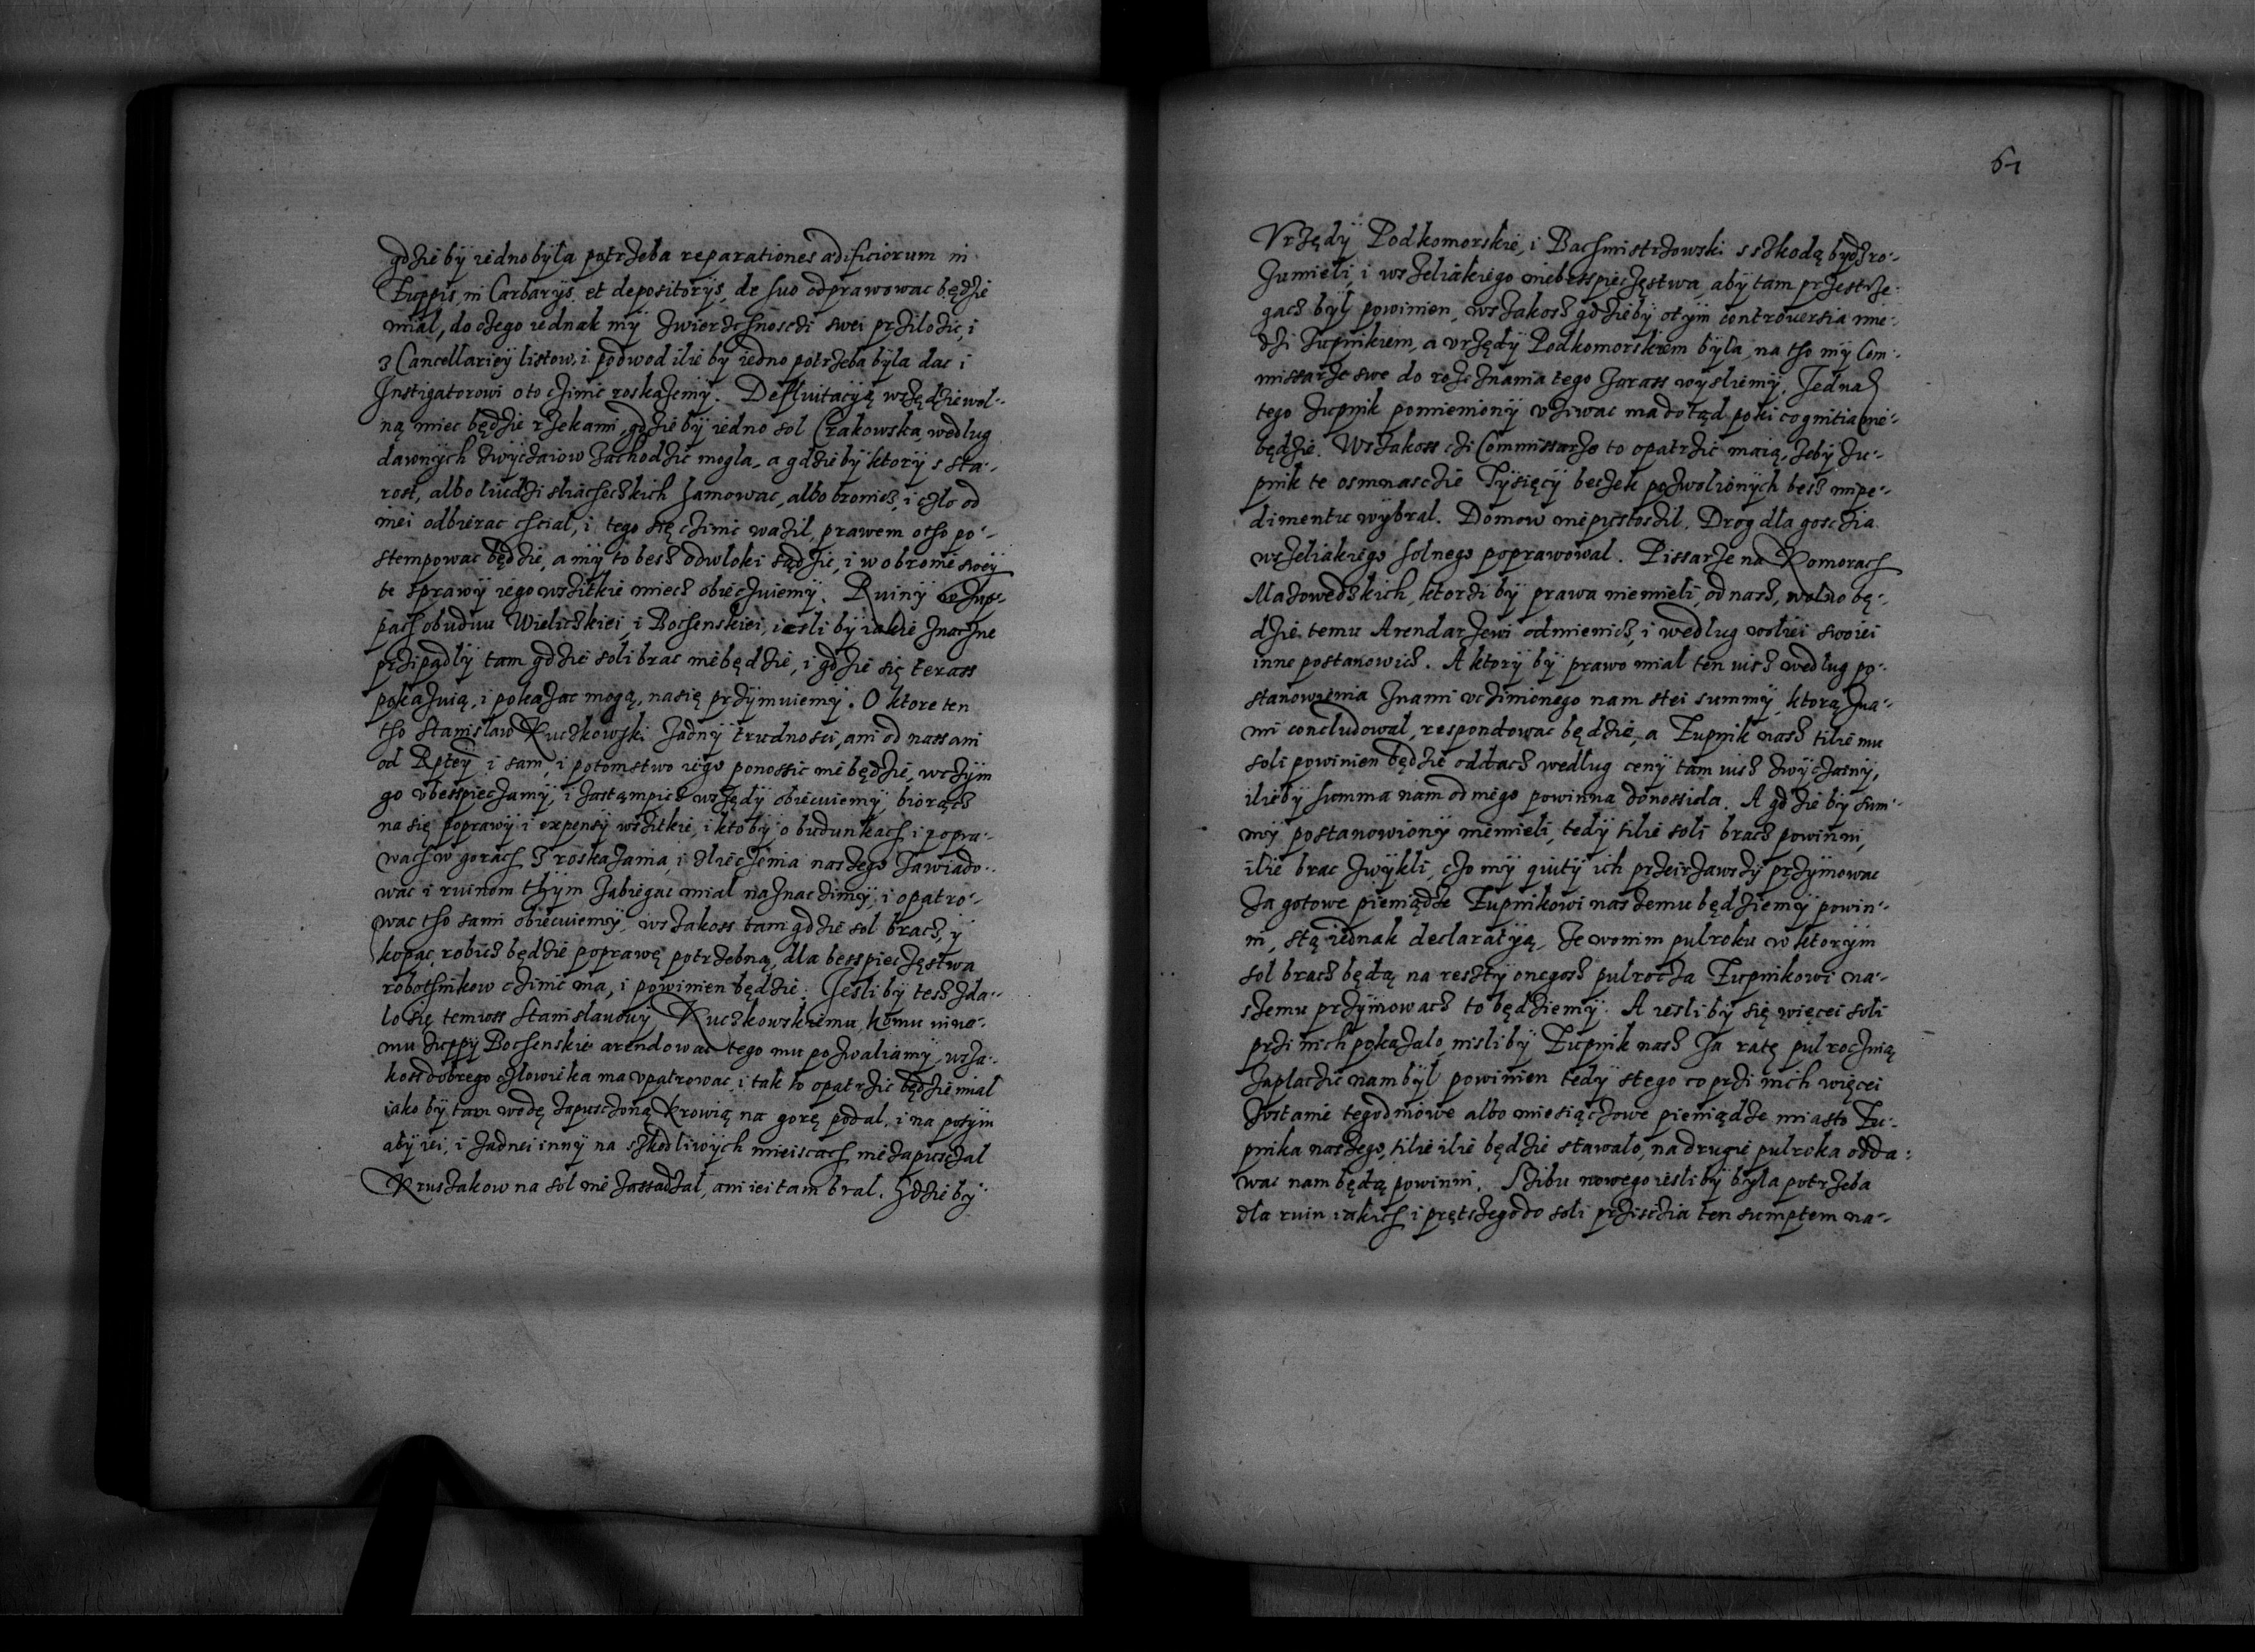 gdzie by iedno była potrzeba reparationes ædificiorum in
Zuppis, in Carbarÿs et depositorÿs, de suo odprawowac będzie
miał, do cżego iednak mÿ zwierzchnoscżi swei przilożic, i
z Cancellarieÿ listow, i podwod ilie by iedno potrzeba była dac i
Instigatorowi o to cżinic roskażemÿ. Defluitacÿą wszędzie wol-
ną miec będzie rzekami, gdzie bÿ iedno sol Crakowska, według
dawnÿch zwÿcżaiow zachodzic mogła, a gdzie bÿ ktorÿ s sta-
rost, albo liudzi sliachecskich hamowac, albo bronicz, i cżło od
niei odbierac chciał, i tego się cżinic ważił, prawem o tho po-
stempowac będzie, a mÿ to besz odwłoki sądzic, i w obronie swey
te sprawÿ iego wszitkie miecz obiecżuiemÿ. Ruinÿ w Zup-
pach obudwu Wieliczskiei, i Bochenskiei, iesli bÿ iakie znacżne
przipadłÿ tam gdzie soli brac niebędzie, i gdzie się terass
pokażuią, i pokażac mogą, na się przÿmuiemÿ. O ktore ten
tho Stanisław Kuczkowski żadnÿ trudnosci, ani od nass ani
od Rptey i sam, i potomstwo iego ponossic nie będzie, w cżÿm
go vbesspiecżamÿ, i zastąmpicz wszędÿ obiecuiemÿ, biorącz
na się poprawÿ i expensÿ wszitkie, i kto bÿ o budunkach i popra-
wach w gorach z roskażania, i zliecżenia naszego zawiado-
wac i ruinom thÿm żabiegac miał naznacżimÿ, i opatro-
wac tho sami obiecuiemÿ, wszakoss tam gdzie sol bracz, ÿ
kopac, robicz będzie poprawę potrzebną, dla besspiecżęstwa
robothnikow cżinic ma, i powinien będzie. Iesli bÿ tesz zda-
ło się temuss Stanisławowÿ Kuczkowskiemu, komu inne-
mu Zuppÿ Bochenskie arendowac tego mu pozwaliamÿ, wsza-
koss dobrego cżłowieka ma vpatrowac, i tak to opatrzic będzie miał
iako bÿ tam wodę zapuscżoną krowią na gorę podał, i na potÿm
abÿ iei, i żadnei innÿ na szkodliwÿch mieiscach nie zapuscżał
Kruszakow na sol nie zassadzał, ani iei tam brał. Gdzie bÿ
61
Vrzędÿ Podkomorskie, i Bachmistrzowski s szkodą bÿdz ro-
zumieli, i wszeliakiego niebesspiecżęstwa, abÿ tam przestrze-
gacz bÿł powinien, wszakosz gdzieby o tÿm controuersia mie-
dzi Zupnikiem, a vrzędÿ Podkomorskiem bÿła, na tho mÿ Com-
missarze swe do rozeznania tego zarass wÿsliemÿ, Iednak
tego Zupnik pomienionÿ vżiwac ma dotąd poki cognitia nie
będzie. Wszakoss cżi Commissarże to opatrzic maią, żebÿ Zu-
pnik te osmnascżie Tÿsięcÿ becżek pozwolionÿch besz impe-
dimentu wÿbrał. Domow nie pustosził. Drog dla goscżia
wszeliakiego solnego poprawował. Pissarze na Komorach
Mazowedskich, ktorzi by prawa niemieli, od nasz, wolno bę-
dzie temu Arendarzewi odmienicz, i według woliei swoiei
inne postanowicz. A ktorÿ bÿ prawo miał ten iusz według po-
stanowienia z nami vcżinionego nam stei summÿ, ktorą z na-
mi concludował, respondowac będzie, a Zupnik nasz tilie mu
soli powinien będzie oddacz według cenÿ tam iusz zwÿcżainÿ,
ilieby summa nam od niego powinna donossiła. A gdzie bÿ sum-
mÿ postanowionÿ niemieli, tedÿ tilie soli bracz powinni,
ilie brac zwÿkli, cżo mÿ quitÿ ich przeirzawszÿ przÿmowac
za gotowe pieniądze Zupnikowi naszemu będziemÿ powin-
ni, stą iednak declaratÿą, że w onim pułroku w ktorÿm
sol bracz będą na resztÿ onegosz pułrocża Zupnikowi na-
szemu przÿmowacz to będziemÿ. A iesli bÿ się więcei soli
przi nich pokażało, nisli bÿ Zupnik nasz za ratę pułrocżnią
zapłacżic nam bÿł powinien tedÿ stego co przi nich więcei
zostanie tegodniowe albo miesiącżowe pieniądze miasto Zu-
pnika naszego, tilie ilie będzie stawało, na drugie pułroka odda-
wac nam będą powinni. Szibu nowego iesli bÿ bÿła potrzeba
dla ruin iakich i prętszego do soli prziscżia ten sumptem na-